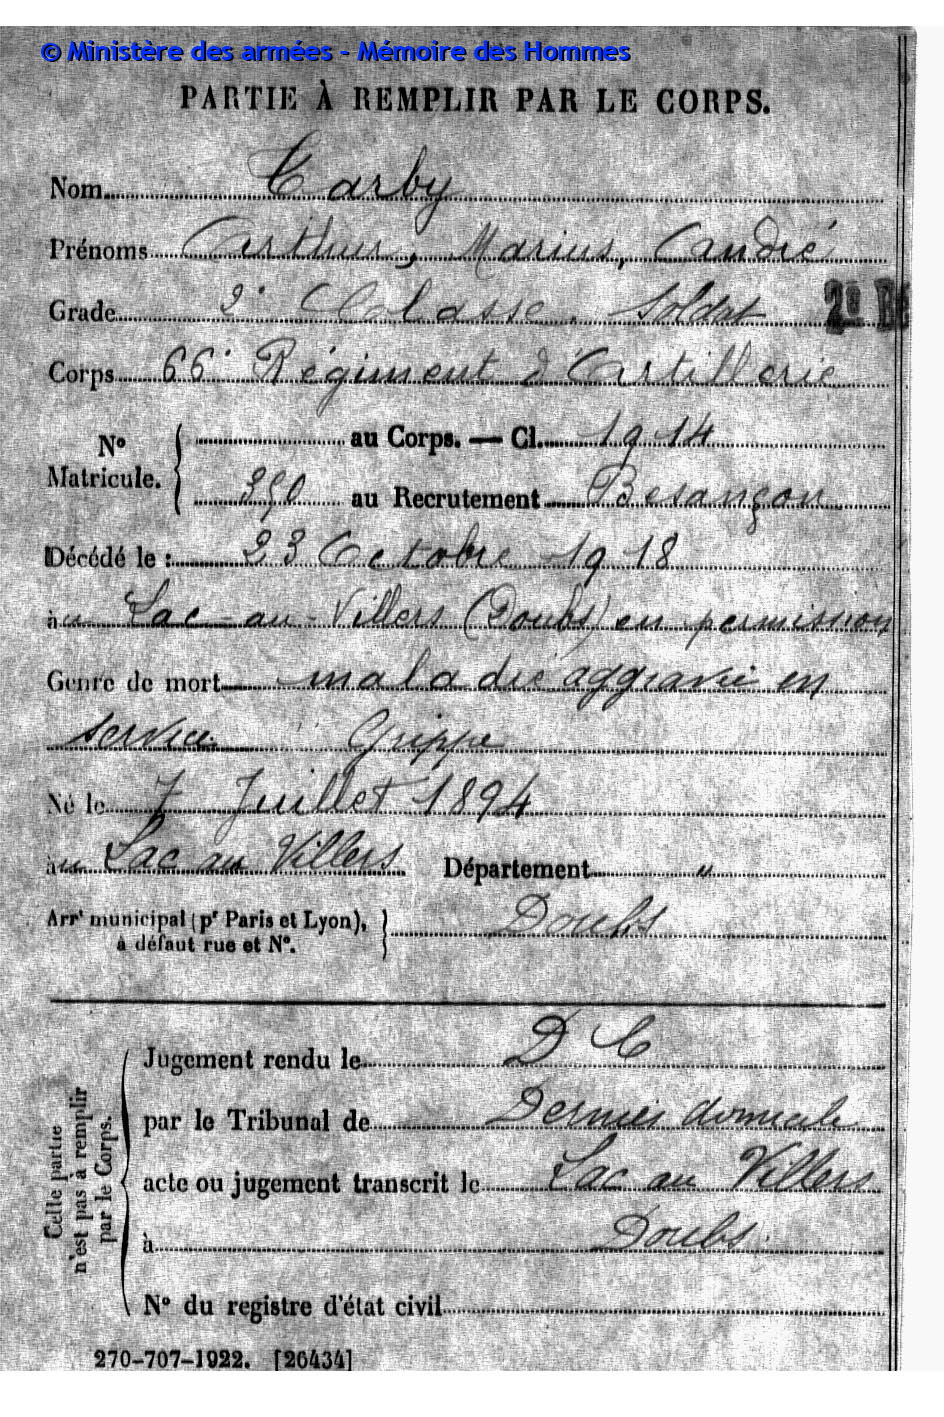 © Ministère des armées - Mémoire des Hommes
PARTIE À REMPLIR PAR LE CORPS.
Nom Carby
Prénoms Arthur, Marius, André
Grade 2e Classe. Soldat
2e B
Corps 66e Régiment d'Artillerie
No Matricule. au Corps. — Cl. 1914
au Recrutement Besançon
Décédé le : 23 Octobre 1918
au Lac-au-Villers (Doubs) en permission
Genre de mort maladie aggravée en
service Grippe
Né le 7 Juillet 1894
au Lac au Villers Département "
Arrt municipal (pr Paris et Lyon), Doubs
à défaut rue et No.
Cette partie n'est pas à remplir par le Corps.
Jugement rendu le D C
par le Tribunal de Dernier domicile
acte ou jugement transcrit le Lac au Villers
à Doubs.
No du registre d'état civil
270-707-1922. [26434]